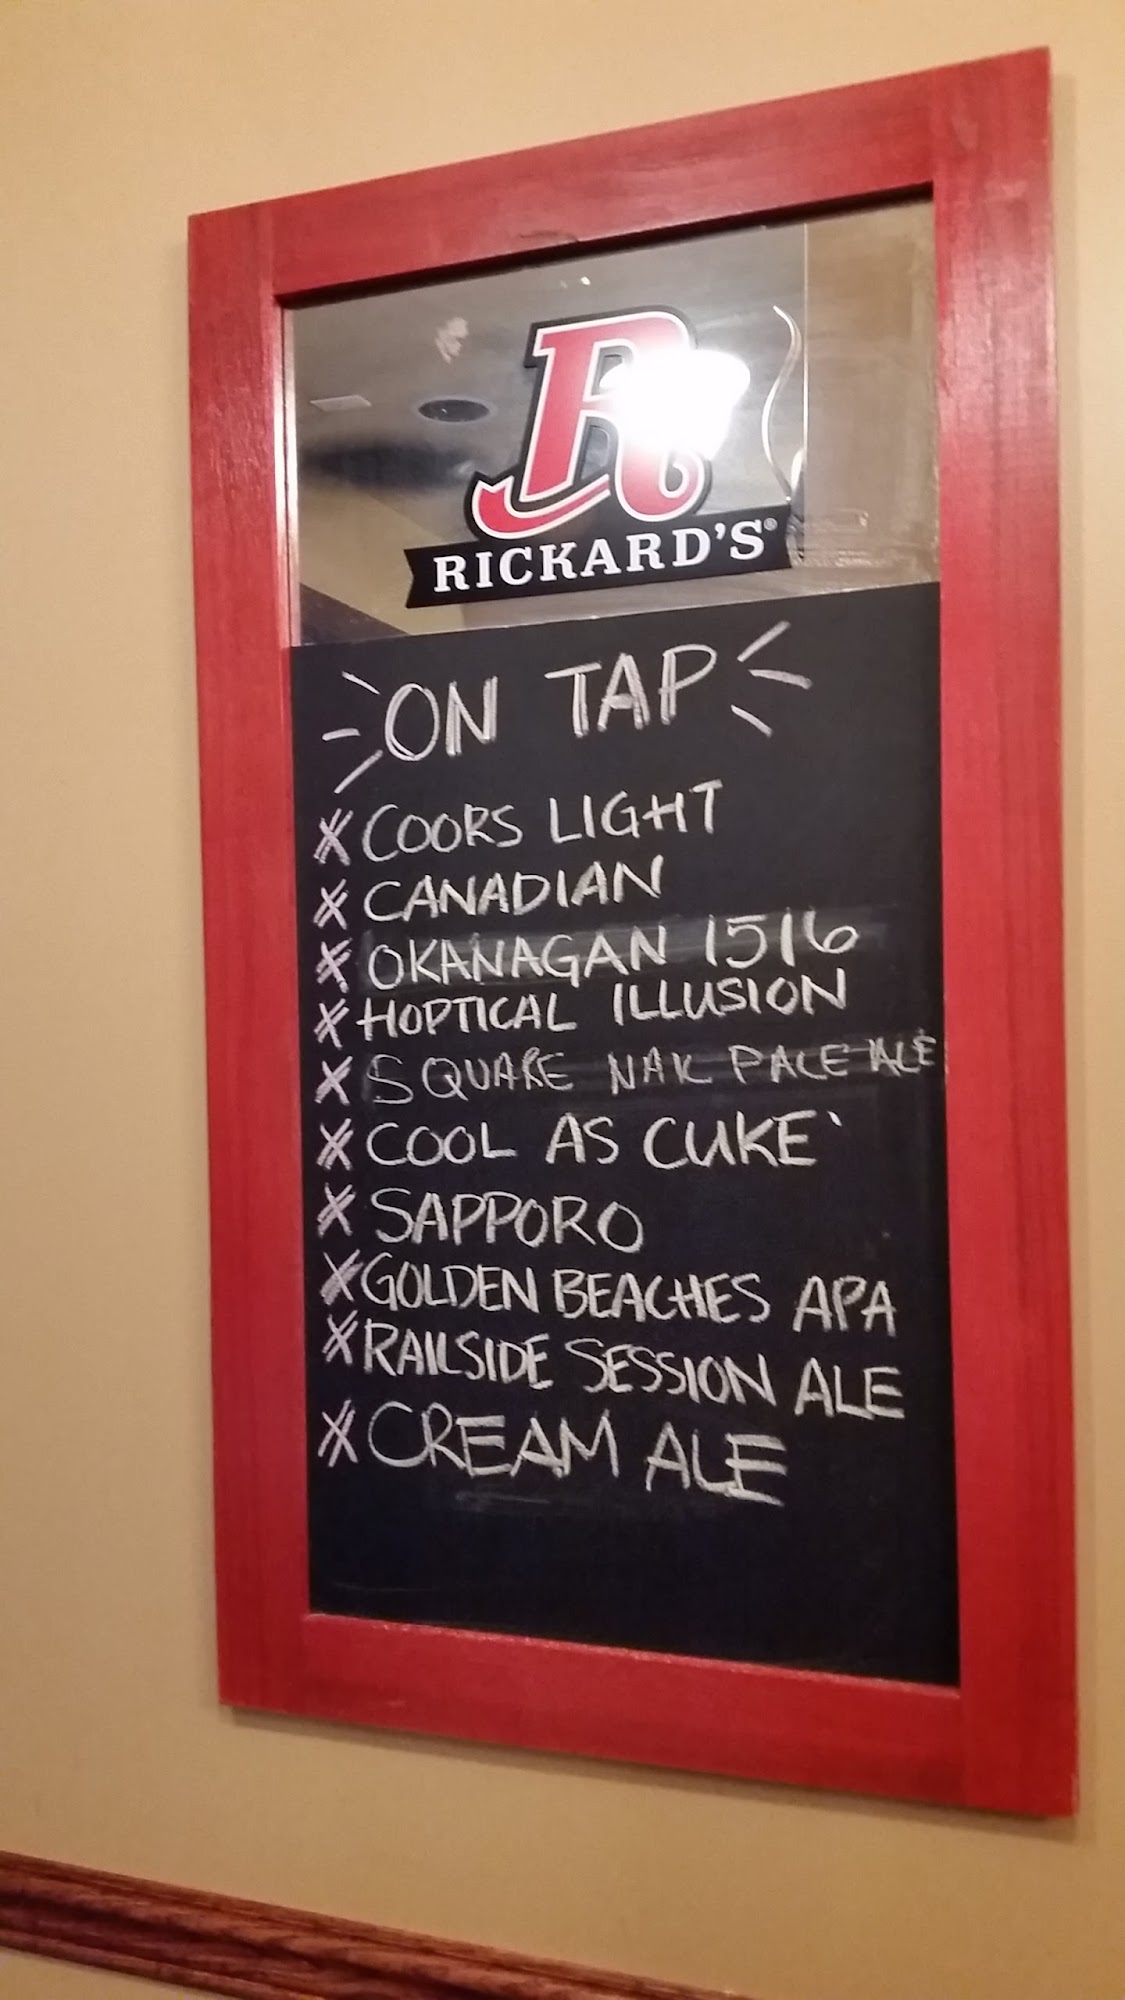 R
RICKARD'S®
ON TAP
COORS LIGHT
CANADIAN
OKANAGAN 1516
HOPTICAL ILLUSION
SQUARE NAIL PALE ALE
COOL AS CUKE'
SAPPORO
GOLDEN BEACHES APA
RAILSIDE SESSION ALE
CREAM ALE